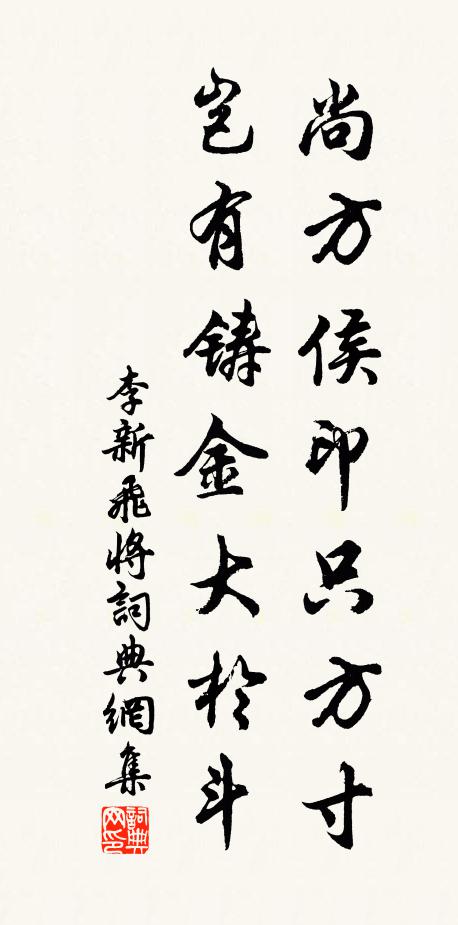 尚方侯印只方寸
豈有鑄金大於斗
李新飛將詞典網集
詞典網印